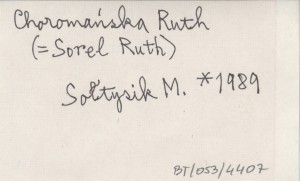 Choromańska Ruth
(=Sorel Ruth)
Sołtysik M. *1989
BT/053/4407